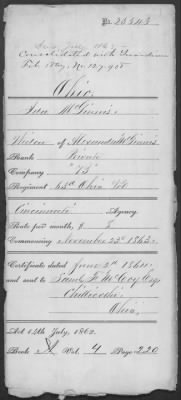 No. 20543
Consolidated with Guardian
No. 127,905
Ohio.
McGinnis.
Widow of Alexander McGinnis
Rank Private
Company "B"
Regiment Ohio Vols
Cincinnati Agency.
Rate per month, $ 8
Commencing November 23d 1863.
Certificate dated June 2d 1864.
and sent to Saml F. McCoy Esq
Chillicothe
Ohio.
Act 14th July, 1862.
Book A Vol. 4 Page 220